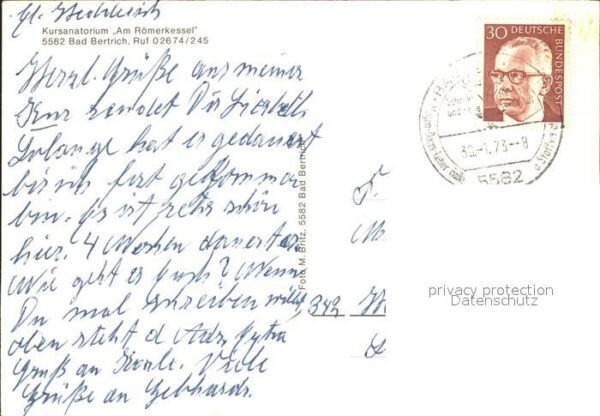 Kursanatorium „Am Römerkessel"
5582 Bad Bertrich, Ruf 02674/245
Herzl. Grüße aus meiner
Kur sendet Dir Liesbeth
Solange hat es gedauert
bis ich fort gekommen
bin. Es ist sehr schön
hier. 4 Wochen dauert es.
Wie geht es Euch? Wenn
Du mal schreiben willst,
oben steht d. Adr. Extra
Gruß an Karle. Viele
Grüße an Gebhards.
Foto M. Britz, 5582 Bad Bertrich
30
DEUTSCHE
BUNDESPOST
30.-1.73--8
5582
343
privacy protection
Datenschutz